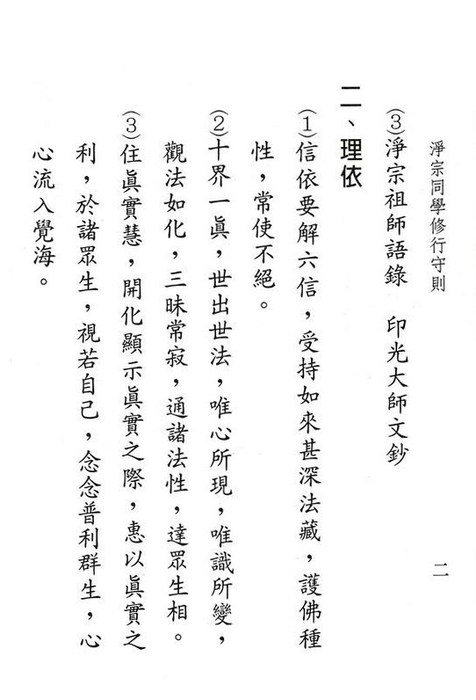 淨宗同學修行守則
二
(3)淨宗祖師語錄　印光大師文鈔
二、理依
(1)信依要解六信，受持如來甚深法藏，護佛種
性，常使不絕。
(2)十界一真，世出世法，唯心所現，唯識所變，
觀法如化，三昧常寂，通諸法性，達眾生相。
(3)住真實慧，開化顯示真實之際，惠以真實之
利，於諸眾生，視若自己，念念普利群生，心
心流入覺海。